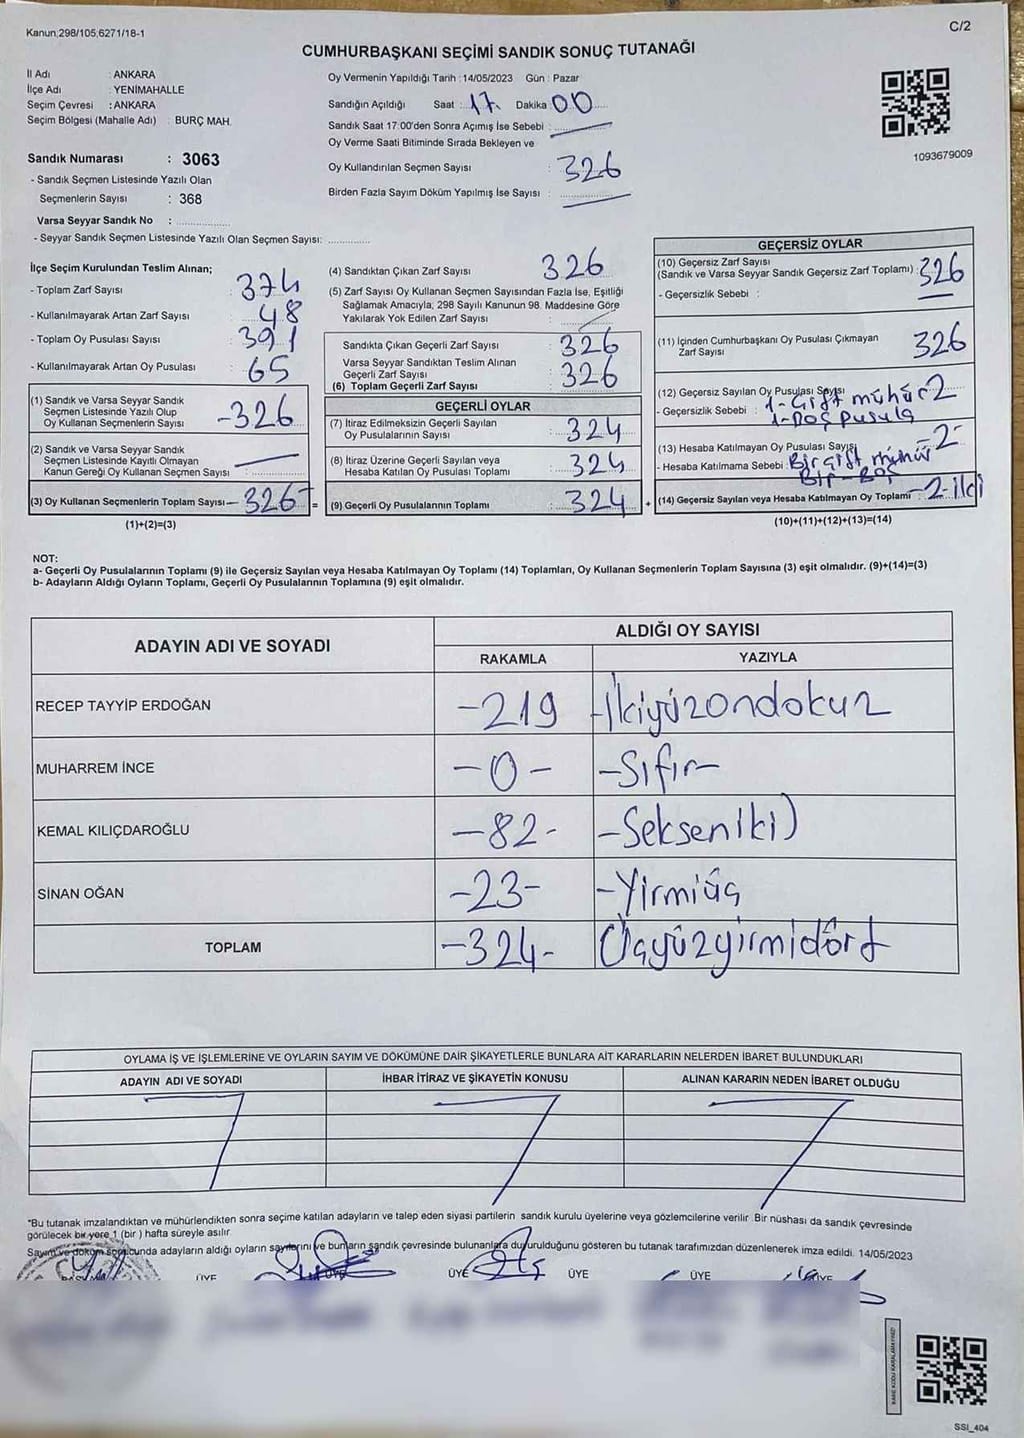 Kanun;298/105,6271/18-1
C/2
CUMHURBAŞKANI SEÇİMİ SANDIK SONUÇ TUTANAĞI
İl Adı : ANKARA
İlçe Adı : YENİMAHALLE
Seçim Çevresi : ANKARA
Seçim Bölgesi (Mahalle Adı) : BURÇ MAH.
Sandık Numarası : 3063
- Sandık Seçmen Listesinde Yazılı Olan
Seçmenlerin Sayısı : 368
Varsa Seyyar Sandık No :
- Seyyar Sandık Seçmen Listesinde Yazılı Olan Seçmen Sayısı:
Oy Vermenin Yapıldığı Tarih : 14/05/2023 Gün : Pazar
Sandığın Açıldığı Saat : 17. Dakika : 00
Sandık Saat 17:00'den Sonra Açımış İse Sebebi :
Oy Verme Saati Bitiminde Sırada Bekleyen ve
Oy Kullandırılan Seçmen Sayısı : 326
Birden Fazla Sayım Döküm Yapılmış İse Sayısı :
1093679009
İlçe Seçim Kurulundan Teslim Alınan;
- Toplam Zarf Sayısı : 374
- Kullanılmayarak Artan Zarf Sayısı : 48
- Toplam Oy Pusulası Sayısı : 391
- Kullanılmayarak Artan Oy Pusulası : 65
(1) Sandık ve Varsa Seyyar Sandık
Seçmen Listesinde Yazılı Olup
Oy Kullanan Seçmenlerin Sayısı -326
(2) Sandık ve Varsa Seyyar Sandık
Seçmen Listesinde Kayıtlı Olmayan
Kanun Gereği Oy Kullanan Seçmen Sayısı :
(3) Oy Kullanan Seçmenlerin Toplam Sayısı - 326 -
(1)+(2)=(3)
(4) Sandıktan Çıkan Zarf Sayısı 326
(5) Zarf Sayısı Oy Kullanan Seçmen Sayısından Fazla İse, Eşitliği
Sağlamak Amacıyla; 298 Sayılı Kanunun 98. Maddesine Göre
Yakılarak Yok Edilen Zarf Sayısı :
Sandıkta Çıkan Geçerli Zarf Sayısı : 326
Varsa Seyyar Sandıktan Teslim Alınan
Geçerli Zarf Sayısı : 326
(6) Toplam Geçerli Zarf Sayısı
GEÇERLİ OYLAR
(7) İtiraz Edilmeksizin Geçerli Sayılan
Oy Pusulalarının Sayısı : 324
(8) İtiraz Üzerine Geçerli Sayılan veya
Hesaba Katılan Oy Pusulası Toplamı : 324
= (9) Geçerli Oy Pusulalarının Toplamı : 324 +
GEÇERSİZ OYLAR
(10) Geçersiz Zarf Sayısı
(Sandık ve Varsa Seyyar Sandık Geçersiz Zarf Toplamı) : 326
- Geçersizlik Sebebi :
(11) İçinden Cumhurbaşkanı Oy Pusulası Çıkmayan
Zarf Sayısı 326
(12) Geçersiz Sayılan Oy Pusulası Sayısı 2
- Geçersizlik Sebebi : 1-Çift mühür
1-Boş pusula
(13) Hesaba Katılmayan Oy Pusulası Sayısı -2-
- Hesaba Katılmama Sebebi : Bir çift mühür
Bir-Boş
(14) Geçersiz Sayılan veya Hesaba Katılmayan Oy Toplamı : -2- iki
(10)+(11)+(12)+(13)=(14)
NOT:
a- Geçerli Oy Pusulalarının Toplamı (9) ile Geçersiz Sayılan veya Hesaba Katılmayan Oy Toplamı (14) Toplamları, Oy Kullanan Seçmenlerin Toplam Sayısına (3) eşit olmalıdır. (9)+(14)=(3)
b- Adayların Aldığı Oyların Toplamı, Geçerli Oy Pusulalarının Toplamına (9) eşit olmalıdır.
ADAYIN ADI VE SOYADI ALDIĞI OY SAYISI
RAKAMLA YAZIYLA
RECEP TAYYİP ERDOĞAN -219 -İkiyüzondokuz
MUHARREM İNCE -0- -Sıfır-
KEMAL KILIÇDAROĞLU -82- -Sekseniki)
SİNAN OĞAN -23- -Yirmiüç
TOPLAM -324- Üçyüzyirmidört
OYLAMA İŞ VE İŞLEMLERİNE VE OYLARIN SAYIM VE DÖKÜMÜNE DAİR ŞİKAYETLERLE BUNLARA AİT KARARLARIN NELERDEN İBARET BULUNDUKLARI
ADAYIN ADI VE SOYADI İHBAR İTİRAZ VE ŞİKAYETİN KONUSU ALINAN KARARIN NEDEN İBARET OLDUĞU
*Bu tutanak imzalandıktan ve mühürlendikten sonra seçime katılan adayların ve talep eden siyasi partilerin sandık kurulu üyelerine veya gözlemcilerine verilir. Bir nüshası da sandık çevresinde
görülecek bir yere 1 (bir ) hafta süreyle asılır.
Sayım ve döküm sonucunda adayların aldığı oyların sayılarını ve bunların sandık çevresinde bulunanlara duyurulduğunu gösteren bu tutanak tarafımızdan düzenlenerek imza edildi. 14/05/2023
ÜYE ÜYE ÜYE ÜYE ÜYE ÜYE
SSI_404